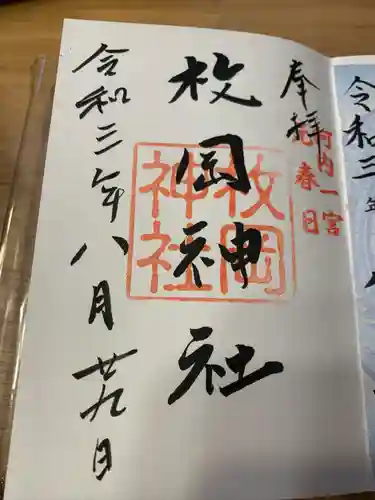 奉拝
河内一宮
元春日
枚岡神社
枚岡
神社
令和三年八月廿九日
令和三
年